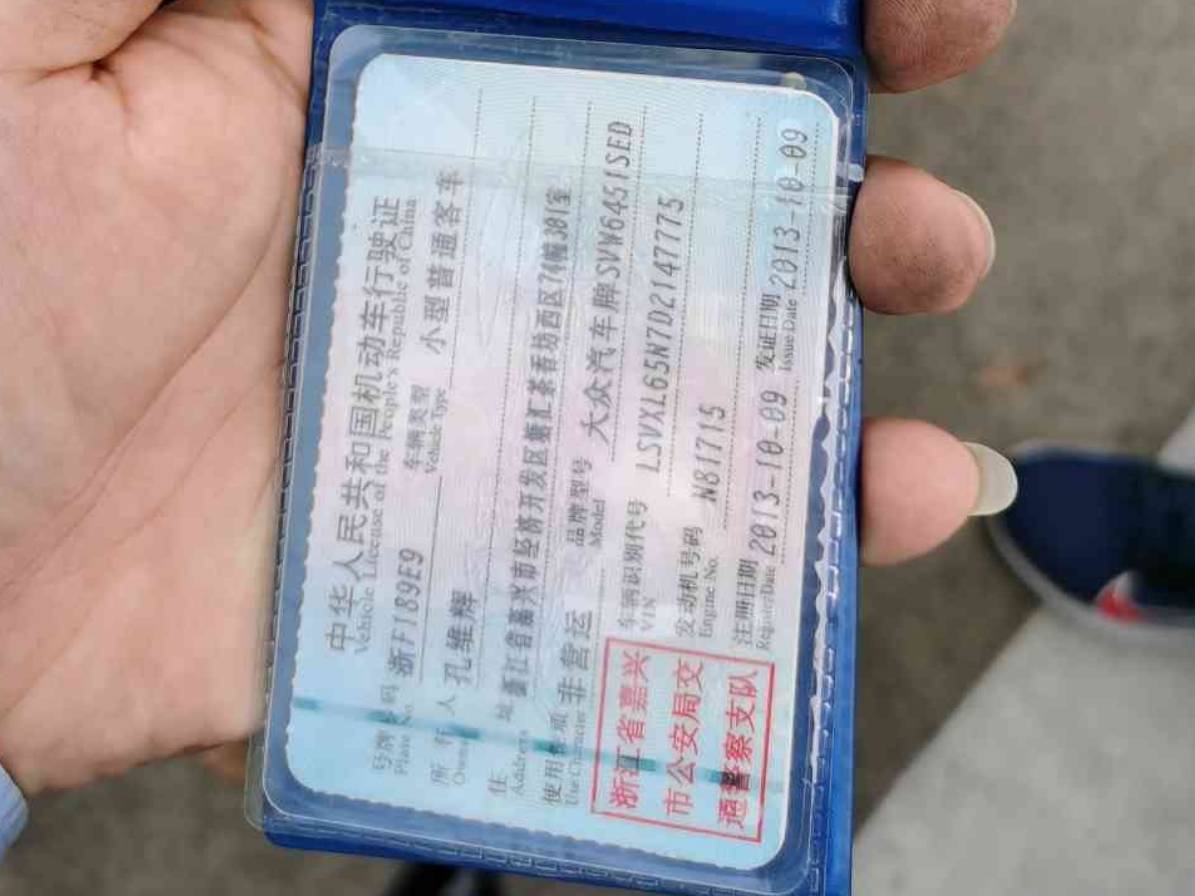 中华人民共和国机动车行驶证
Vehicle License of the People's Republic of China
号牌号码 浙F189E9 车辆类型 小型普通客车
Plate No. Vehicle Type
所有人 孔维辉
Owner
住址 浙江省嘉兴市经济开发区 西区74幢301室
Address
使用性质 非营运 品牌型号 大众汽车牌SVW6451SED
Use Character Model
车辆识别代号 LSVXL65N7D2147775
VIN
发动机号码 N81715
Engine No.
注册日期 2013-10-09 发证日期 2013-10-09
Register Date Issue Date
浙江省嘉兴
市公安局交
通警察支队